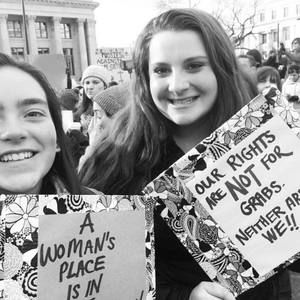 OUR RIGHTS
ARE NOT FOR
GRABS.
NEITHER ARE
WE!!
A
WOMAN'S
PLACE
IS IN